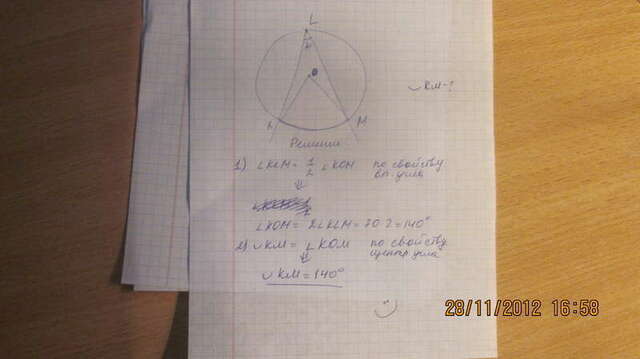 L
O
K M
◡KM-?
Решение
1) ∠KLM = 1/2 ∠KOM по свойству
вп. угла
⇓
∠KOM = 2∠KLM = 70·2 = 140°
2) ◡KM = ∠KOM по свойству
центр угла
⇓
◡KM = 140°
28/11/2012 16:58